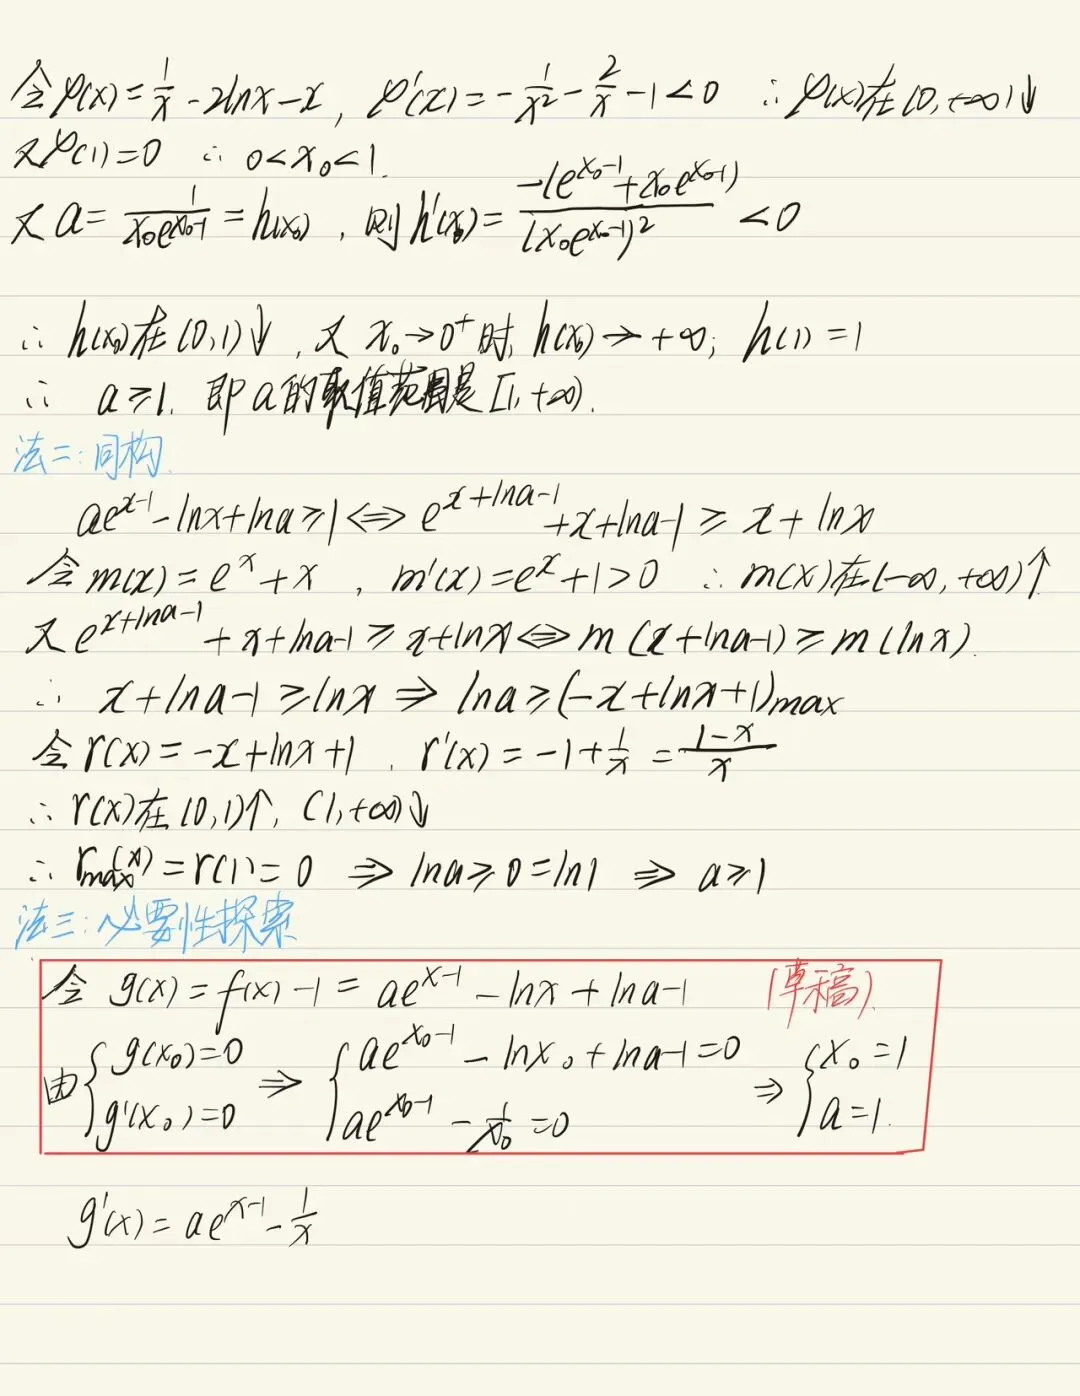 令φ(x)=1/x-2lnx-x, φ'(x)=-1/x²-2/x-1<0 ∴φ(x)在(0,+∞)↓
又φ(1)=0 ∴ 0<x₀<1.
又a=1/(x₀e^(x₀-1))=h(x₀), 则h'(x₀)=-(e^(x₀-1)+x₀e^(x₀-1))/(x₀e^(x₀-1))²<0
∴ h(x₀)在(0,1)↓, 又 x₀→0⁺时, h(x₀)→+∞; h(1)=1
∴ a≥1. 即a的取值范围是[1,+∞).
法二:同构.
ae^(x-1)-lnx+lna≥1⟺e^(x+lna-1)+x+lna-1≥x+lnx
令m(x)=e^x+x, m'(x)=e^x+1>0 ∴m(x)在(-∞,+∞)↑
又e^(x+lna-1)+x+lna-1≥x+lnx⟺m(x+lna-1)≥m(lnx).
∴ x+lna-1≥lnx⇒lna≥(-x+lnx+1)max
令r(x)=-x+lnx+1, r'(x)=-1+1/x=(1-x)/x
∴r(x)在(0,1)↑, (1,+∞)↓
∴rmax(x)=r(1)=0 ⇒lna≥0=ln1 ⇒ a≥1
法三:必要性探索
令 g(x)=f(x)-1=ae^(x-1)-lnx+lna-1 (草稿).
由{g(x₀)=0 ⇒ {ae^(x₀-1)-lnx₀+lna-1=0 ⇒ {x₀=1
g'(x₀)=0 ae^(x₀-1)-1/x₀=0 a=1.
g'(x)=ae^(x-1)-1/x